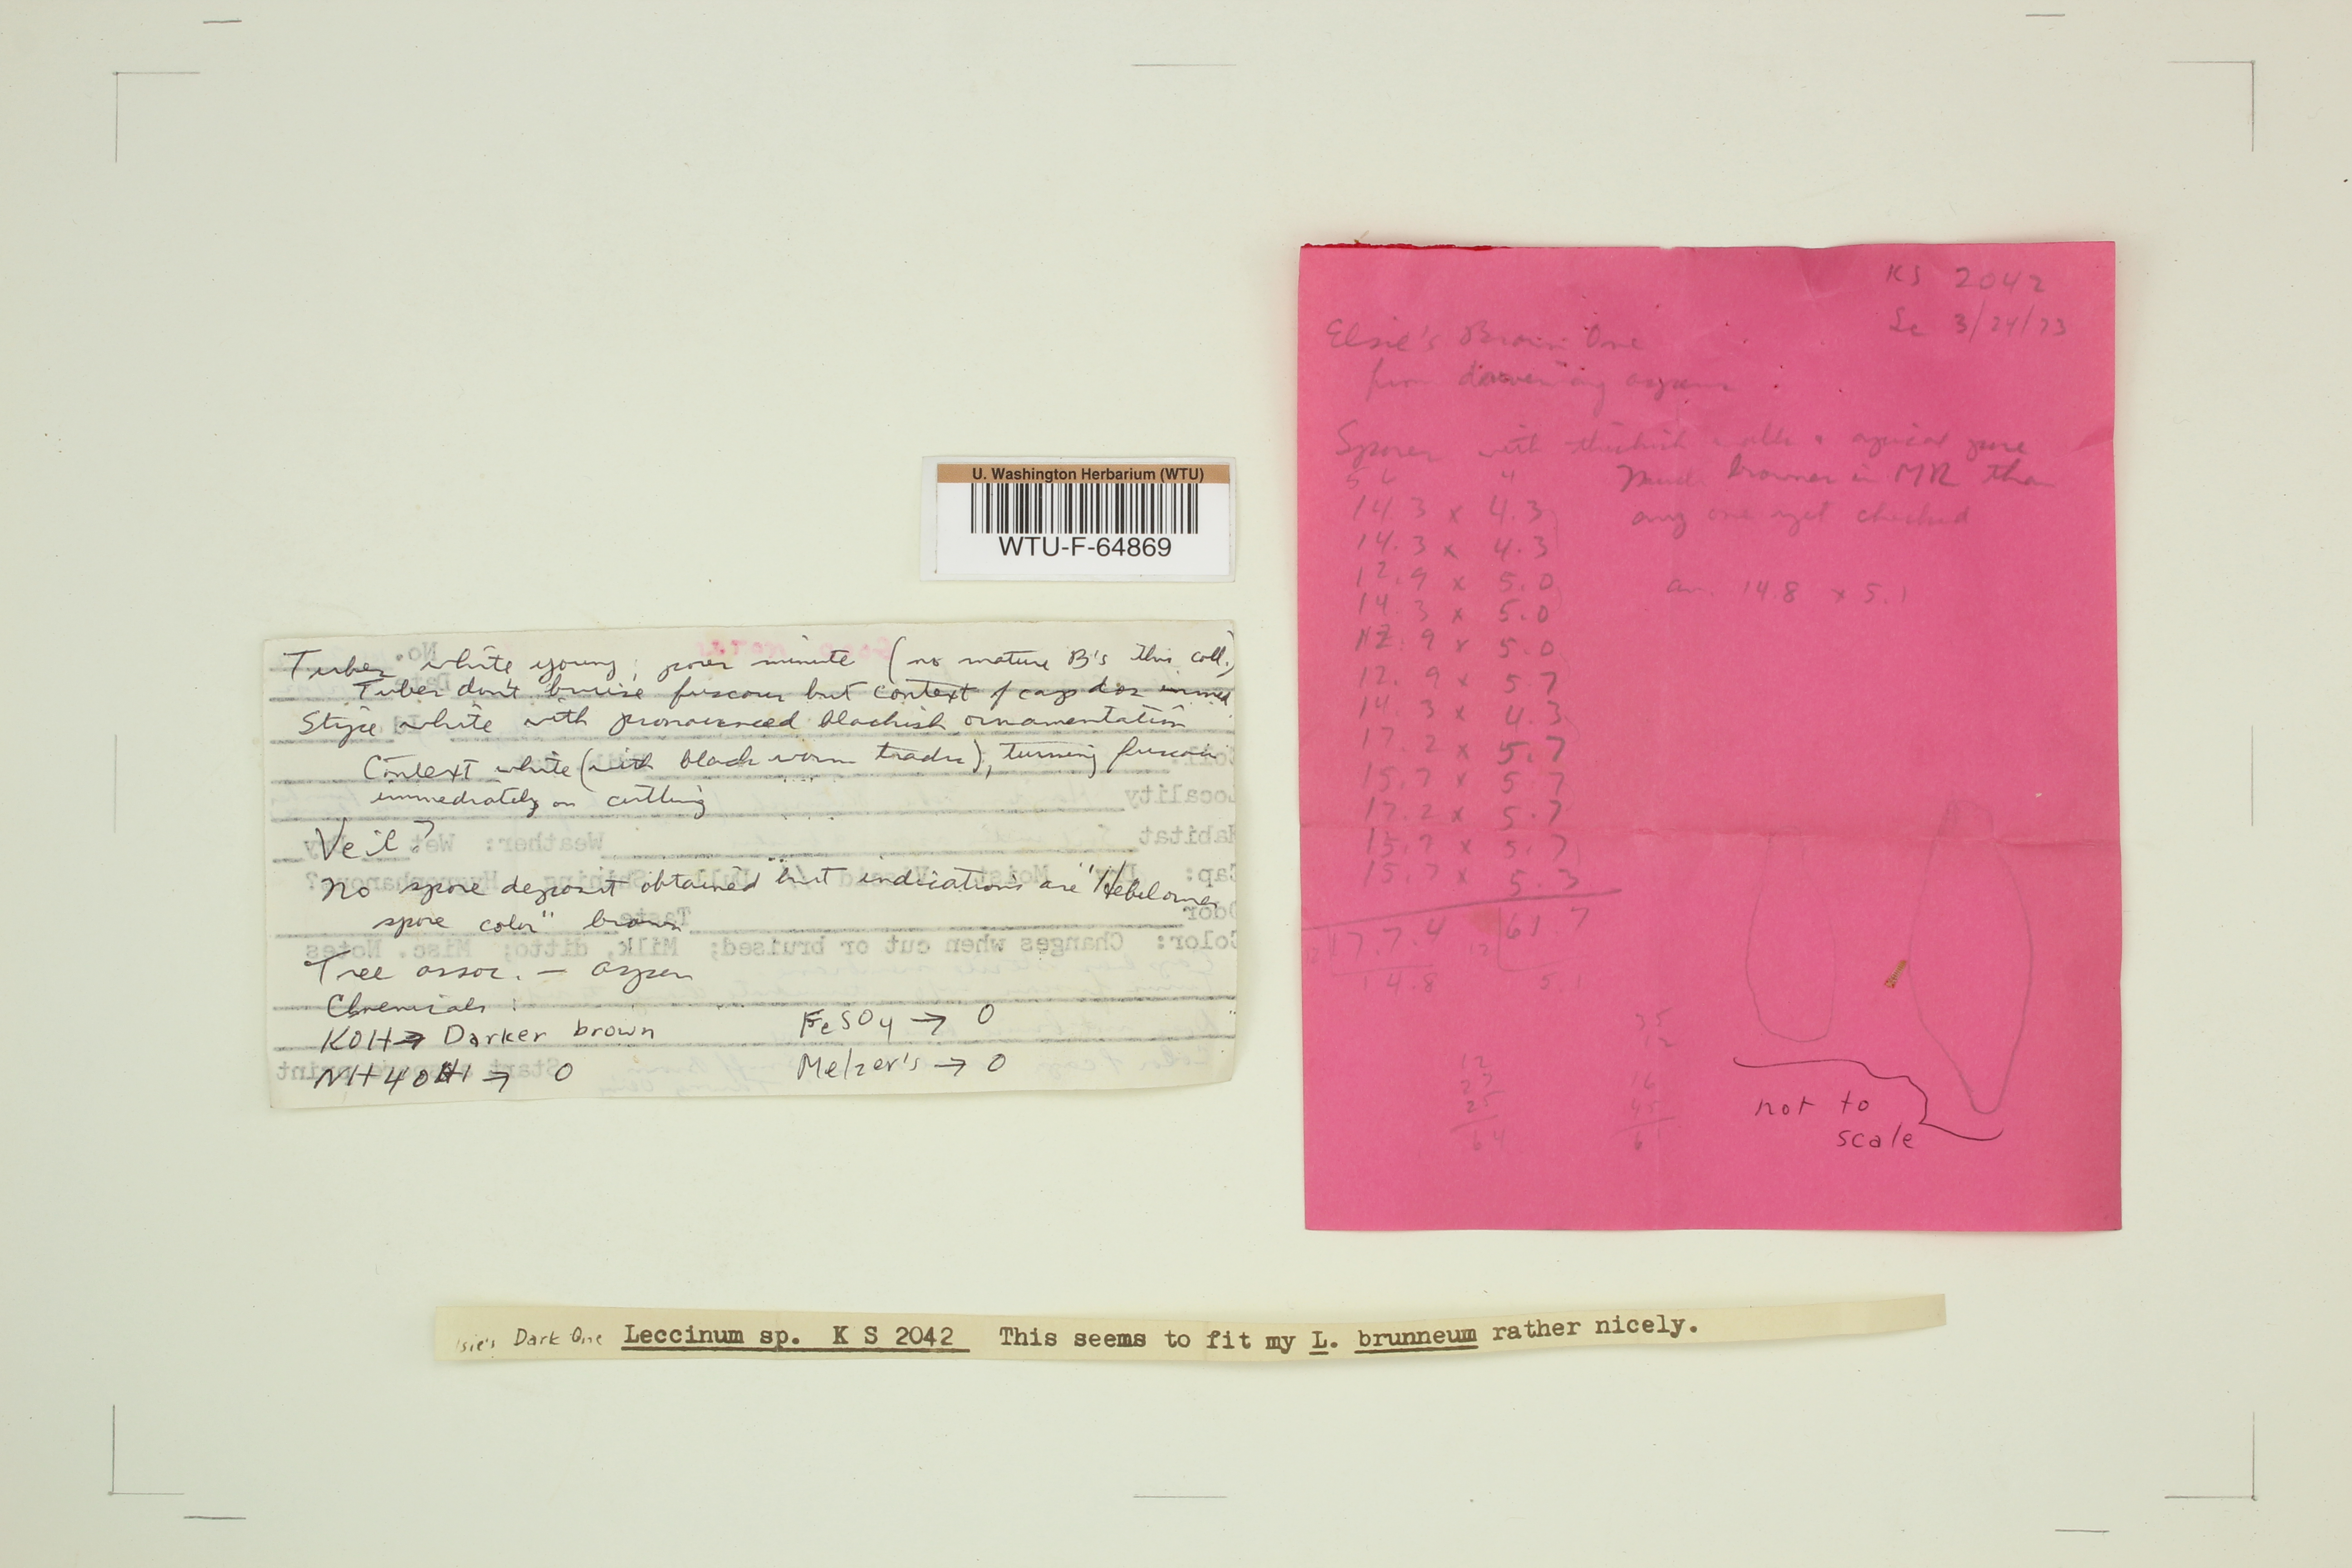 U. Washington Herbarium (WTU)
WTU-F-64869
Tubes white young; pores minute (no mature B's this coll.)
Tubes don't bruise fuscous but context of cap does immed
Stipe white with pronounced blackish ornamentation
Context white (with black worm tracks), turning fuscous
immediately on cutting
Veil?
No spore deposit obtained but indications are "Hebeloma
spore color" brown
Tree assoc. — aspen
Chemicals:
KOH → Darker brown
FeSO4 → 0
NH4OH → 0
Melzer's → 0
No.
Locality
Habitat
Weather: Wet
Cap:
Moist
Dull
Shining
Hygrophanous?
Odor
Taste
Color: Changes when cut or bruised; Milk, ditto; Misc. Notes
Start
print
KS 2042
3/24/73
Elsie's Brown One
from
aspens
Spores with thickish walls & apical pore
Much browner in MR than
any one yet checked
14.3 x 4.3
14.3 x 4.3
12.9 x 5.0
14.3 x 5.0
12.9 x 5.0
12.9 x 5.7
14.3 x 4.3
17.2 x 5.7
15.7 x 5.7
17.2 x 5.7
15.7 x 5.7
15.7 x 5.3
av. 14.8 x 5.1
12 177.4
12 61 7
14.8
5.1
not to
scale
Dark One Leccinum sp. K S 2042 This seems to fit my L. brunneum rather nicely.